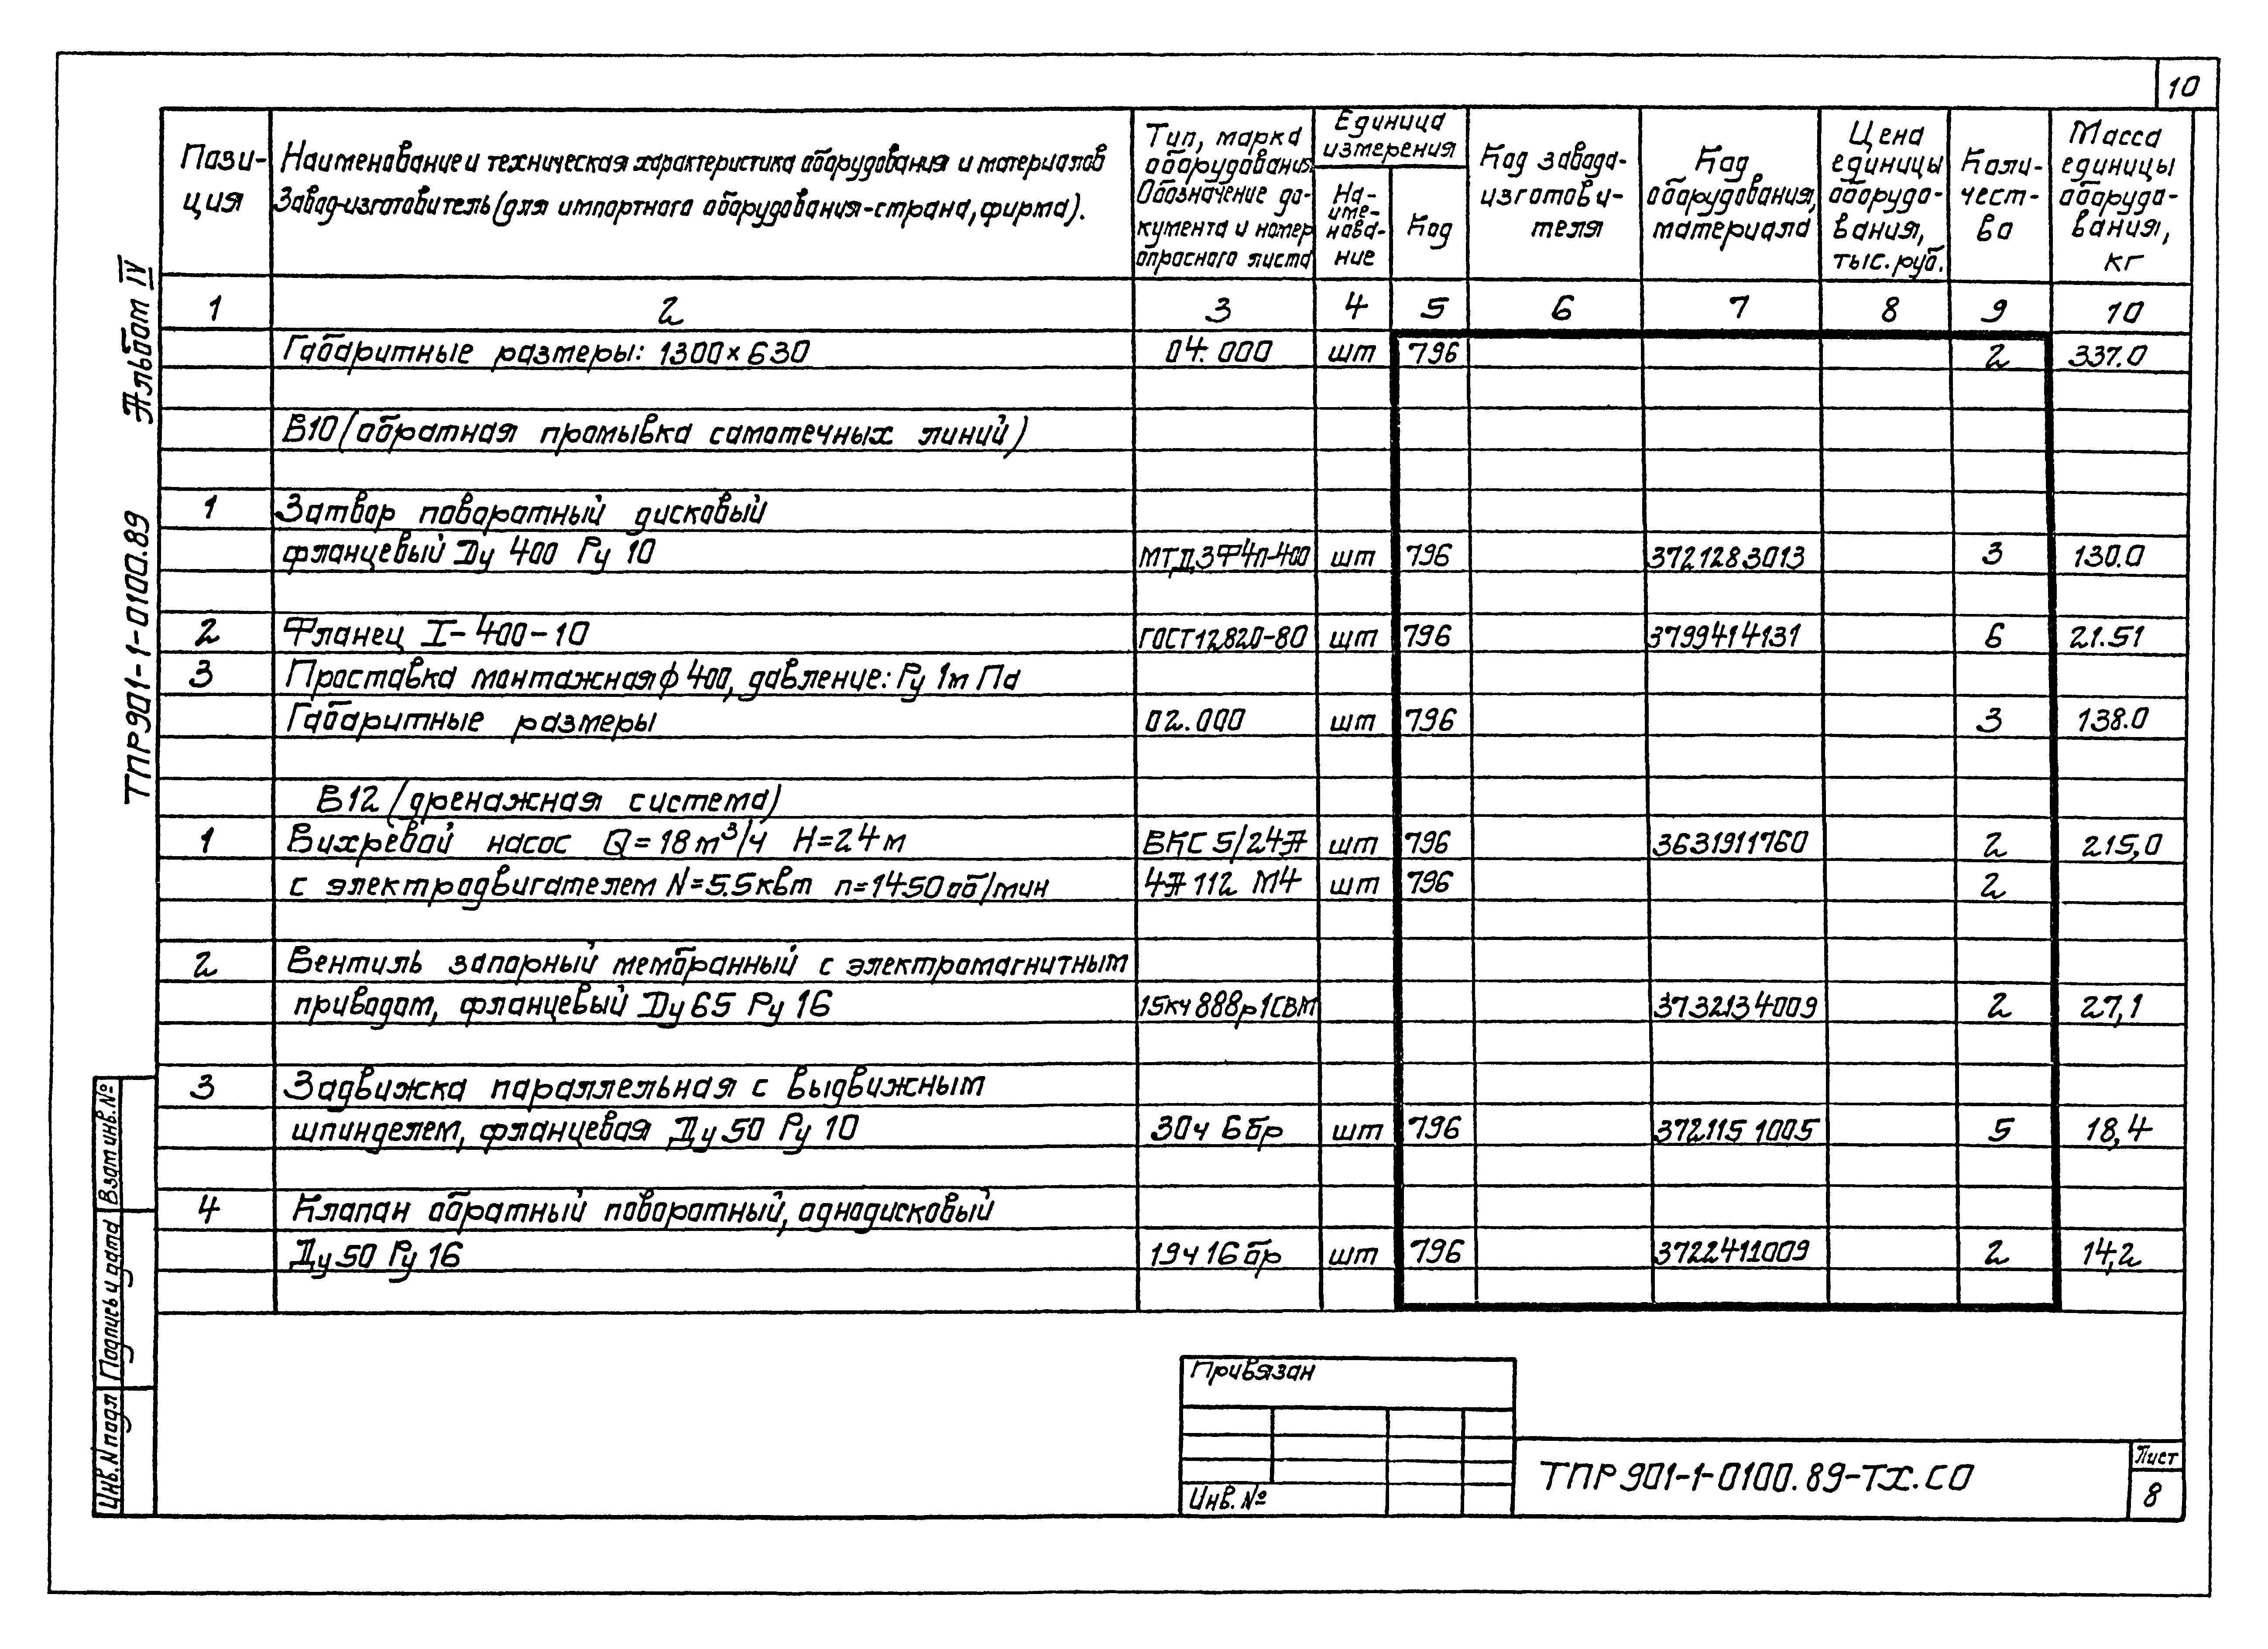 10
Пози-
ция
Наименование и техническая характеристика оборудования и материалов
Завод-изготовитель (для импортного оборудования-страна, фирма).
Тип, марка
оборудования.
Обозначение до-
кумента и номер
опросного листа
Единица
измерения
На-
име-
нова-
ние
Код
Код завода-
изготови-
теля
Код
оборудования,
материала
Цена
единицы
оборудо-
вания,
тыс. руб.
Коли-
чест-
во
Масса
единицы
оборудо-
вания,
кг
1 2 3 4 5 6 7 8 9 10
Габаритные размеры: 1300×630 04.000 шт 796 2 337.0
В10 (обратная промывка самотечных линий)
1 Затвор поворотный дисковый
фланцевый Ду 400 Ру 10 МТД.3Ф4п-400 шт 796 3721283013 3 130.0
2 Фланец I-400-10 ГОСТ12820-80 шт 796 3799414131 6 21.51
3 Проставка монтажная ф 400, давление: Ру 1м Па
Габаритные размеры 02.000 шт 796 3 138.0
В12 (дренажная система)
1 Вихревой насос Q=18м³/ч H=24м ВКС 5/24А шт 796 3631911760 2 215,0
с электродвигателем N=5.5квт n=1450 об/мин 4А 112 М4 шт 796 2
2 Вентиль запорный мембранный с электромагнитным
приводом, фланцевый Ду 65 Ру 16 15кч 888р1СВМ 3732134009 2 27,1
3 Задвижка параллельная с выдвижным
шпинделем, фланцевая Ду 50 Ру 10 30ч 6бр шт 796 3721151005 5 18,4
4 Клапан обратный поворотный, однодисковый
Ду 50 Ру 16 19ч 16бр шт 796 3722411009 2 14,2
ТПР901-1-0100.89 Альбом IV
Взам инв. №
Подпись и дата
Инв. N подл
Привязан
Инв. №
ТПР 901-1-0100.89-ТХ.СО
Лист
8